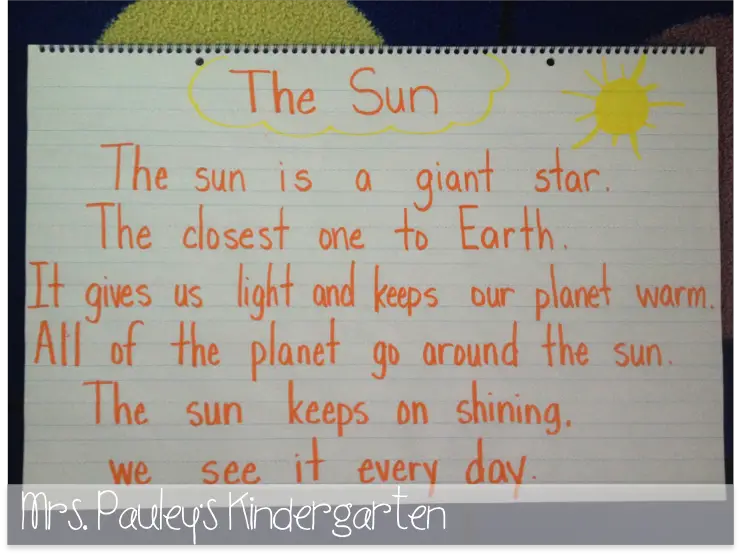 The Sun
The sun is a giant star.
The closest one to Earth.
It gives us light and keeps our planet warm.
All of the planet go around the sun.
The sun keeps on shining.
we see it every day.
Mrs. Pauley's Kindergarten